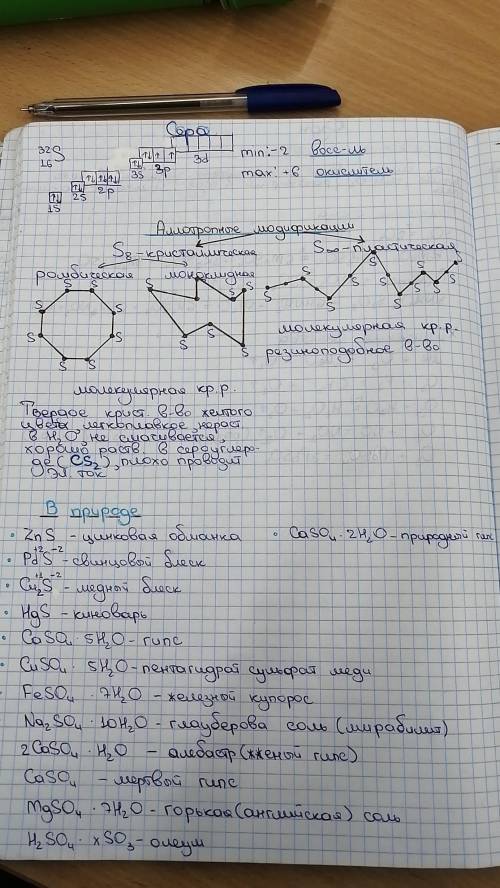 Сера
32 16 S 1s 2s 2p 3s 3p 3d min: -2 восс-ль
max: +6 окислитель
Аллотропные модификации
S8 - кристаллическая S∞ - пластическая
ромбическая моноклидная
S S S S S S S S
S S S S S S
S S S S S S S
молекулярная кр.р.
резиноподобное в-во
молекулярная кр.р.
Твердое крист. в-во желтого
цвета, легкоплавкое, нераст.
в H2O, не смачивается,
хорошо раств. в сероуглеро-
де (CS2), плохо проводит
эл. ток
В природе
• ZnS - цинковая обманка • CaSO4 · 2H2O - природный гипс
• Pd+2S-2 - свинцовый блеск
• Cu2+1S-2 - медный блеск
• HgS - киноварь
• CaSO4 · 5H2O - гипс
• CuSO4 · 5H2O - пентагидрат сульфат меди
FeSO4 · 7H2O - железный купорос
Na2SO4 · 10H2O - глауберова соль (мирабилит)
2CaSO4 · H2O - алебастр (жженый гипс)
CaSO4 - мертвый гипс
MgSO4 · 7H2O - горькая (английская) соль
H2SO4 · xSO3 - олеум